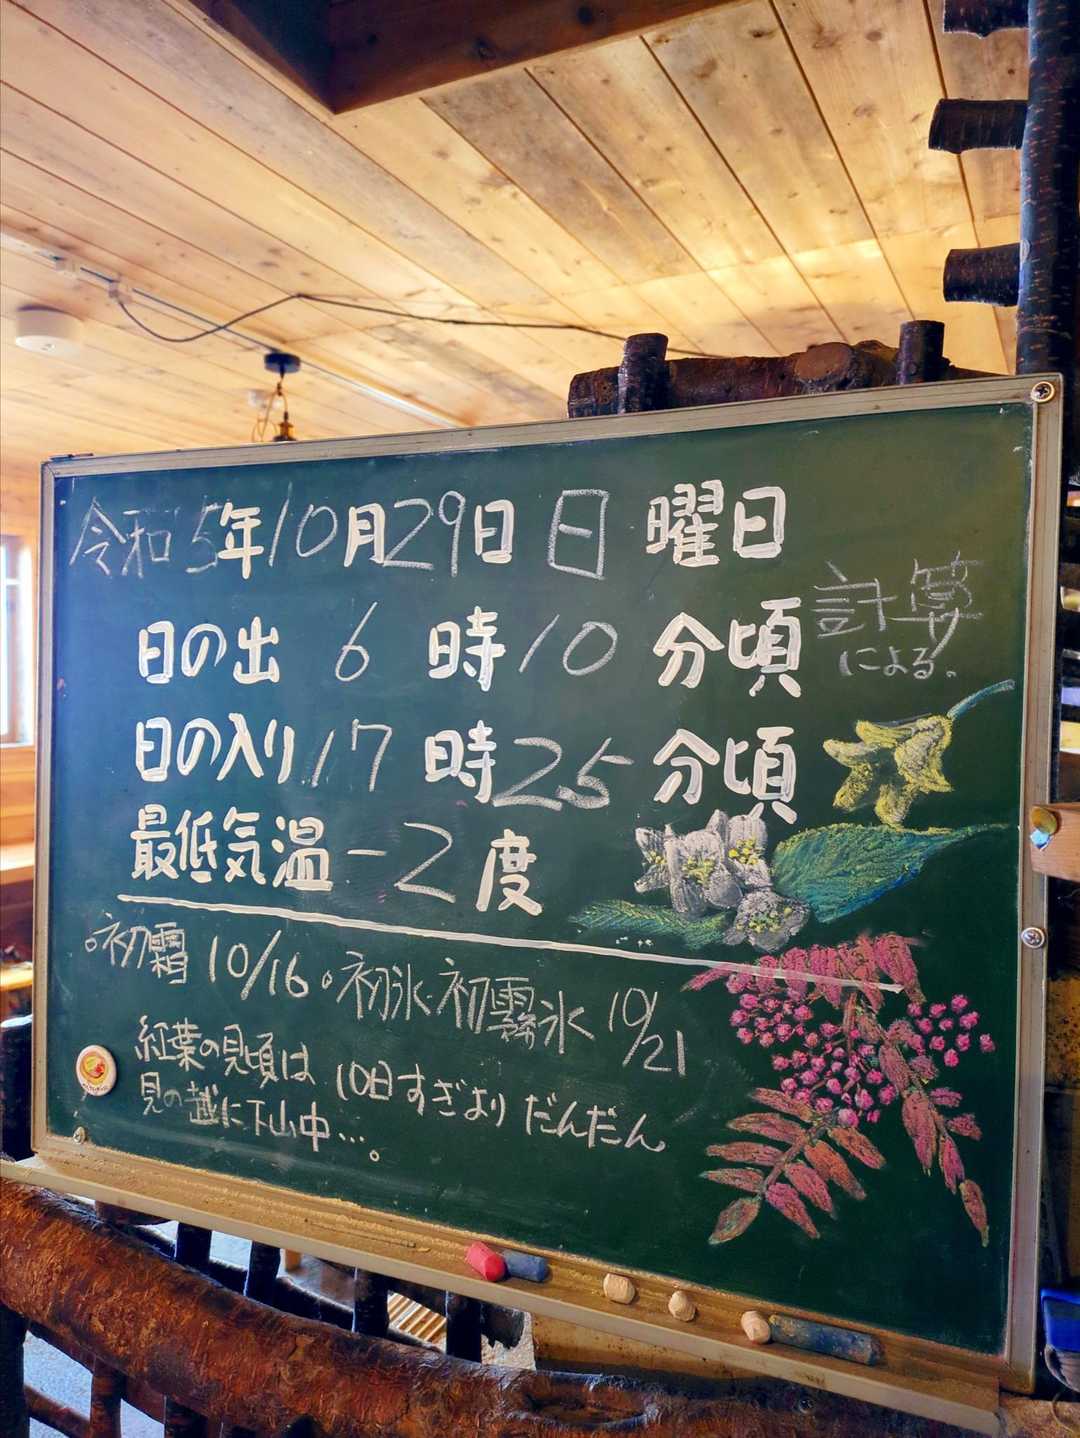 令和5年10月29日 日 曜日
日の出 6 時10 分頃 計算による。
日の入り 17 時25 分頃
最低気温 -2 度
。初霜 10/16 。初氷・初霧氷 10/21
紅葉の見頃は 10日すぎより だんだん
見の越に下山中…。